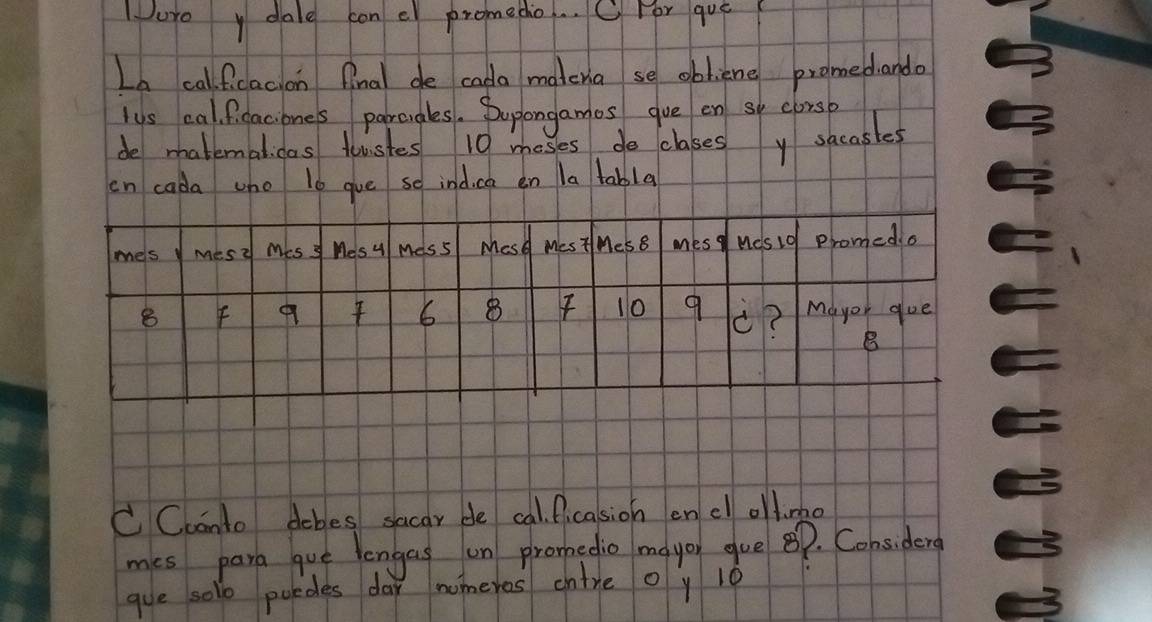 Duro y dale con el promedio... ¿ Por que ?
La calificación final de cada materia se obtiene promediando
lus calificaciones parciales. Supongamos que en su curso
de matematicas tuvistes 10 meses de clases y sacastes
en cada uno lo que se indica en la tabla
mes 1 mes 2 Mes 3 Mes 4 mes 5 Mes 6 Mes 7 Mes 8 mes 9 Mes 10 promedio
8 7 9 7 6 8 7 10 9 ¿? Mayor que
8
¿ Cuánto debes sacar de calificasión en el ultimo
mes para que tengas un promedio mayor que 8?. Considera
que solo puedes dar números entre 0 y 10